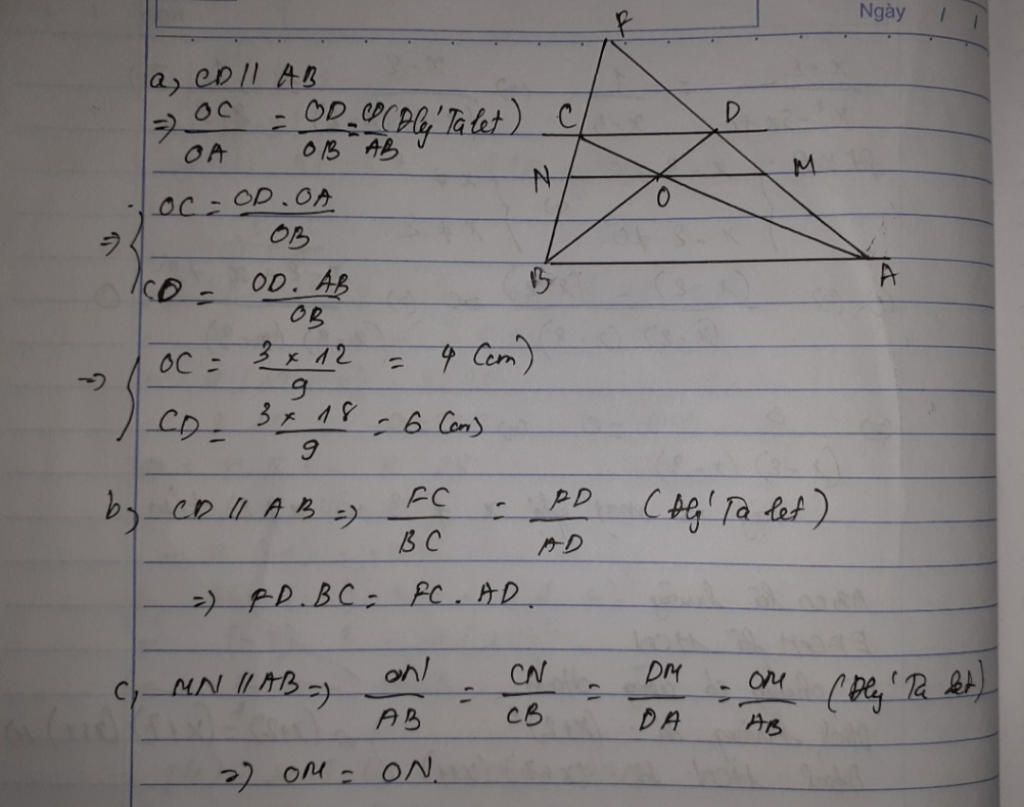 Ngày / /
F
C D
N M
O
B A
a, CD // AB
=> OC/OA = OD/OB = CD/AB (Đlý Talet)
=> { OC = OD . OA / OB
CD = OD . AB / OB
=> { OC = 3 x 12 / 9 = 4 (cm)
CD = 3 x 18 / 9 = 6 (cm)
b, CD // AB => FC/BC = FD/AD (Đlý Ta let)
=> FD . BC = FC . AD.
c, MN // AB => ON/AB = CN/CB = DM/DA = OM/AB (Đlý Ta let)
=> OM = ON.